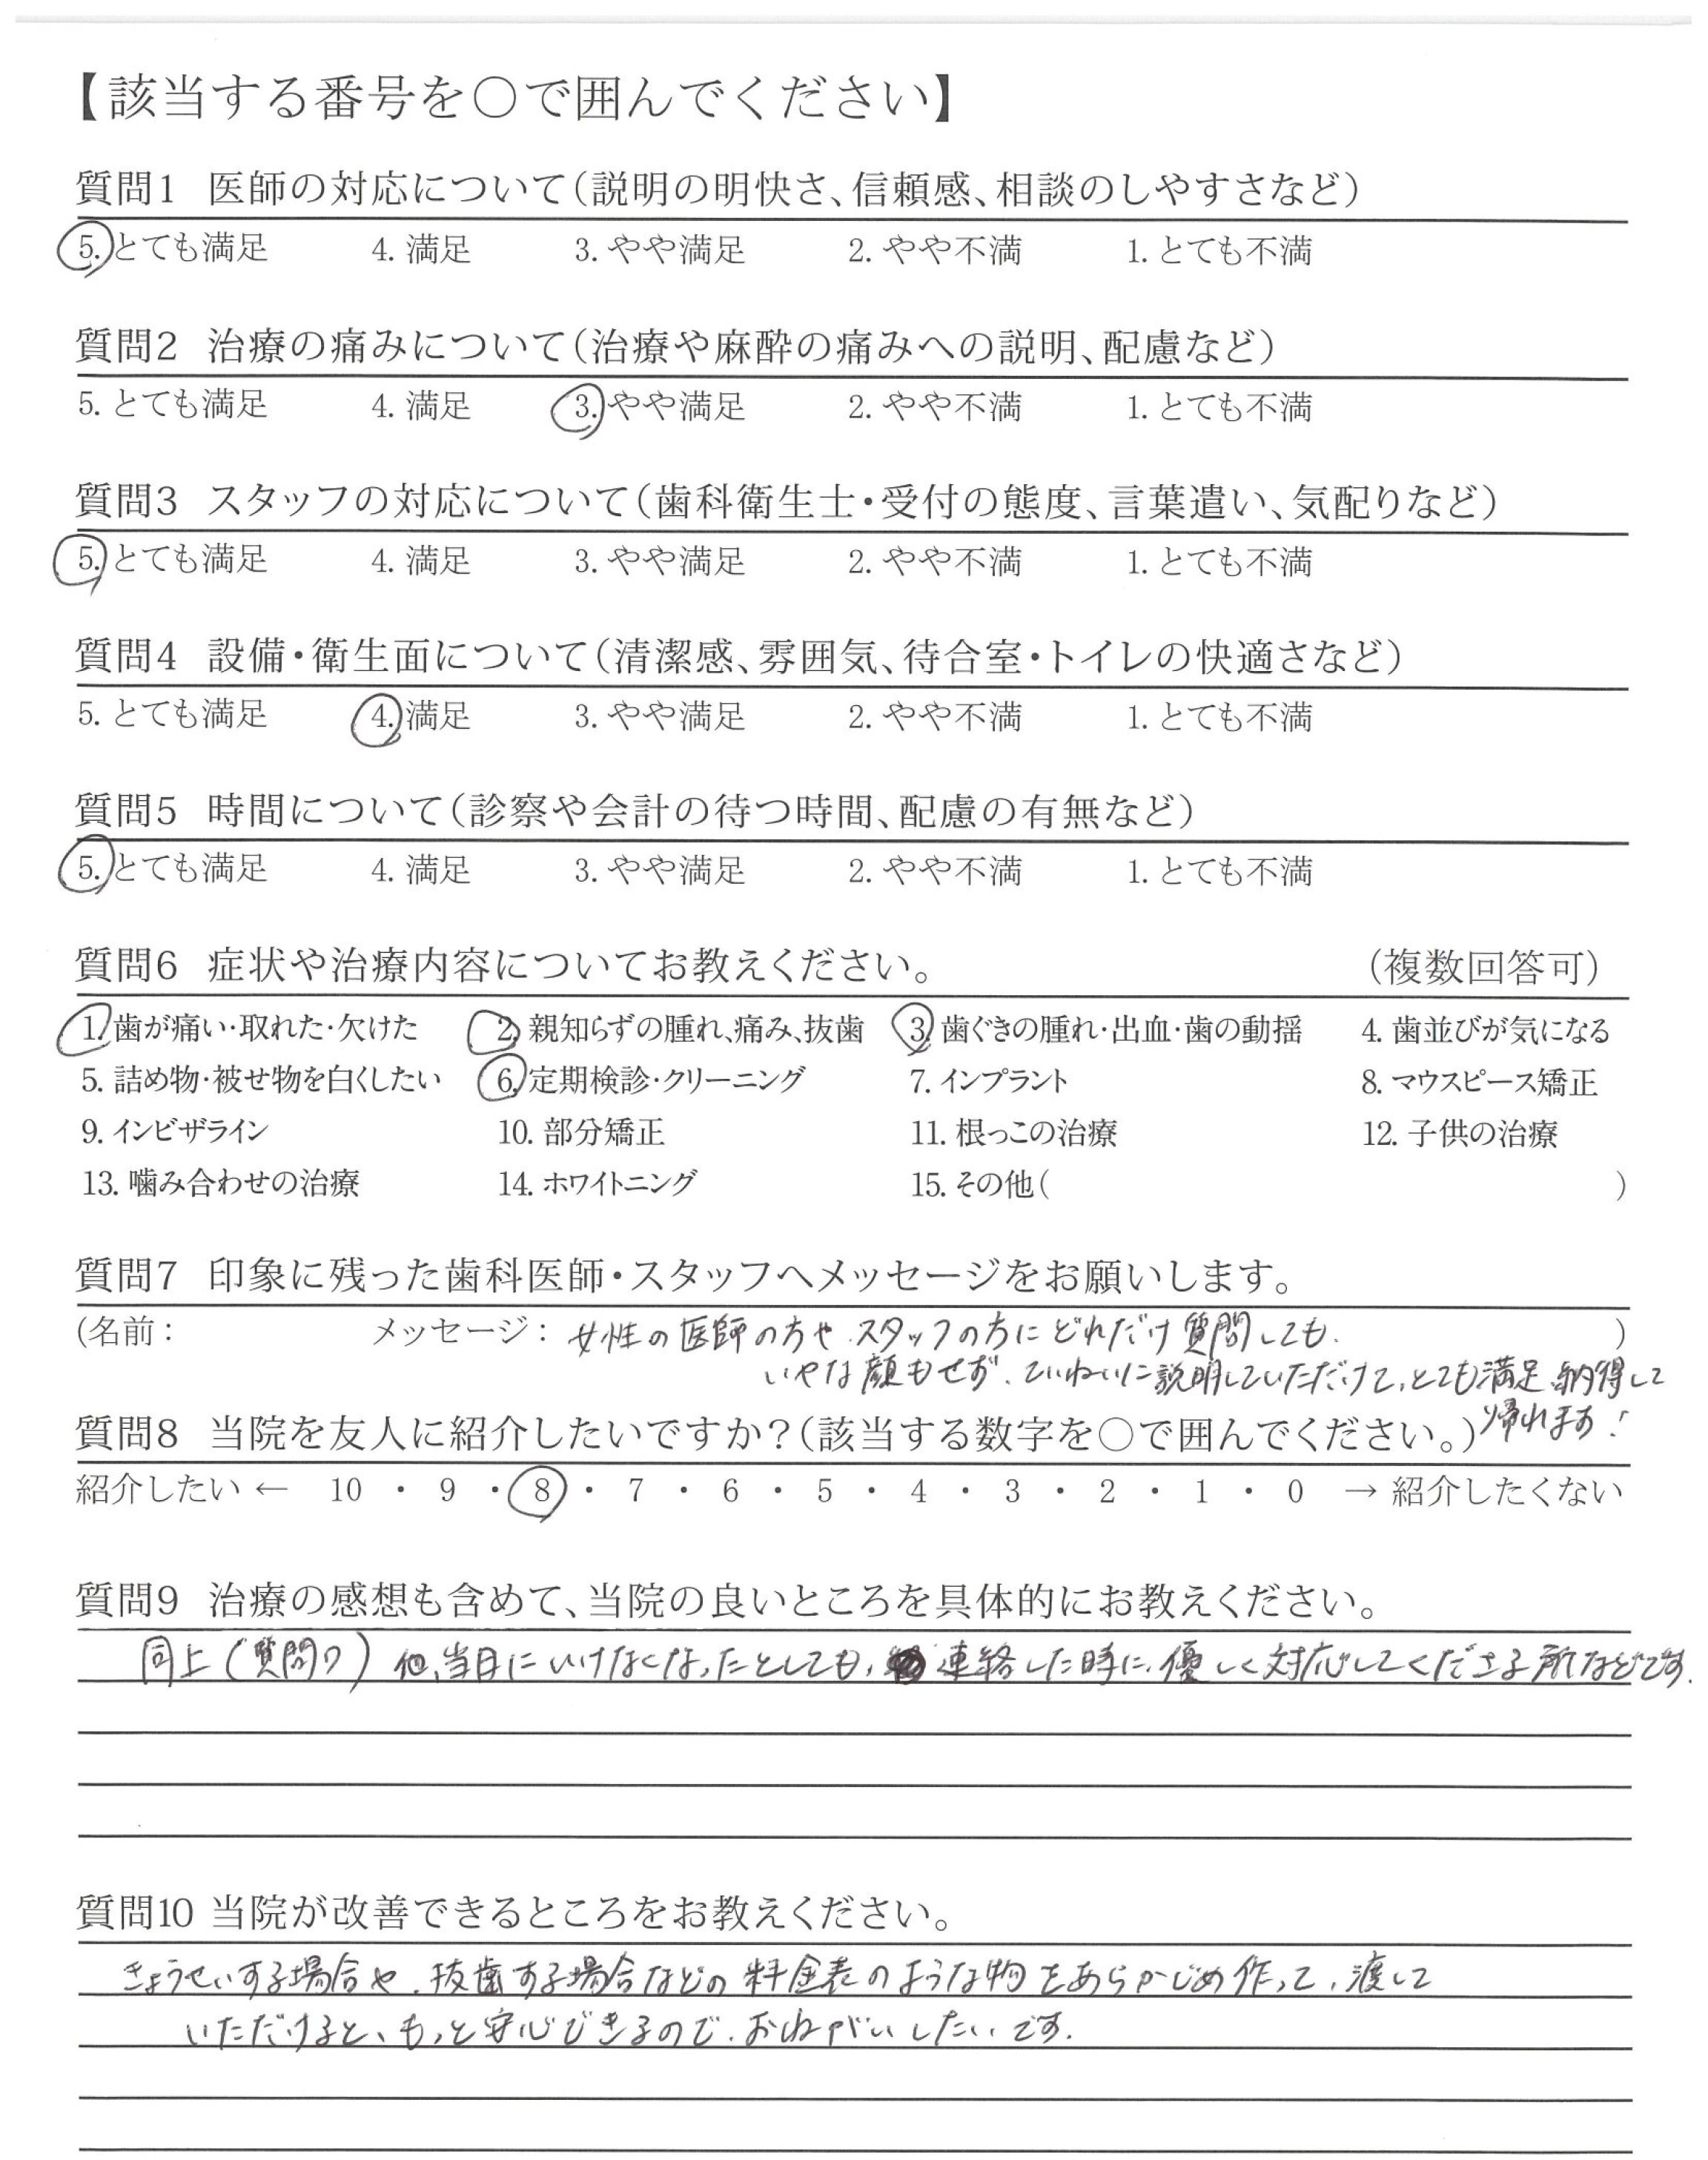 【該当する番号を○で囲んでください】
質問1 医師の対応について(説明の明快さ、信頼感、相談のしやすさなど)
5. とても満足 4. 満足 3. やや満足 2. やや不満 1. とても不満
質問2 治療の痛みについて(治療や麻酔の痛みへの説明、配慮など)
5. とても満足 4. 満足 3. やや満足 2. やや不満 1. とても不満
質問3 スタッフの対応について(歯科衛生士・受付の態度、言葉遣い、気配りなど)
5. とても満足 4. 満足 3. やや満足 2. やや不満 1. とても不満
質問4 設備・衛生面について(清潔感、雰囲気、待合室・トイレの快適さなど)
5. とても満足 4. 満足 3. やや満足 2. やや不満 1. とても不満
質問5 時間について(診察や会計の待つ時間、配慮の有無など)
5. とても満足 4. 満足 3. やや満足 2. やや不満 1. とても不満
質問6 症状や治療内容についてお教えください。 (複数回答可)
1. 歯が痛い・取れた・欠けた 2. 親知らずの腫れ、痛み、抜歯 3. 歯ぐきの腫れ・出血・歯の動揺 4. 歯並びが気になる
5. 詰め物・被せ物を白くしたい 6. 定期検診・クリーニング 7. インプラント 8. マウスピース矯正
9. インビザライン 10. 部分矯正 11. 根っこの治療 12. 子供の治療
13. 噛み合わせの治療 14. ホワイトニング 15. その他( )
質問7 印象に残った歯科医師・スタッフへメッセージをお願いします。
(名前: メッセージ: 女性の医師の方や、スタッフの方にどれだけ質問しても、 )
いやな顔もせず、ていねいに説明していただけて、とても満足、納得して
帰れます!
質問8 当院を友人に紹介したいですか?(該当する数字を○で囲んでください。)
紹介したい ← 10 ・ 9 ・ 8 ・ 7 ・ 6 ・ 5 ・ 4 ・ 3 ・ 2 ・ 1 ・ 0 → 紹介したくない
質問9 治療の感想も含めて、当院の良いところを具体的にお教えください。
同上(質問7) 他、当日にいけなくなったとしても、連絡した時に、優しく対応してくださる所などです。
質問10 当院が改善できるところをお教えください。
きょうせいする場合や、抜歯する場合などの料金表のような物をあらかじめ作って、渡して
いただけると、もっと安心できるので、おねがいしたいです。